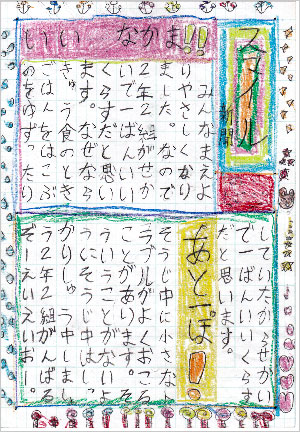 スマイル
新聞
いいなかま!!
みんなまえよ
りやさしくなり
ました。なので
2年2組がせか
いで一ばんいい
くらすだと思い
ます。なぜなら
きゅう食のとき
ごはんをはこぶ
のをゆずったり
していたからせかい
で一ばんいいくらす
だと思います。
あと一ぽ!
そうじ中に小さなト
ラブルがよくおこる
ことがあります。そ
ういうことがないよ
うにそうじ中はしっ
かりしゅう中しましょ
う2年2組がんばる
ぞーえいえいおー。